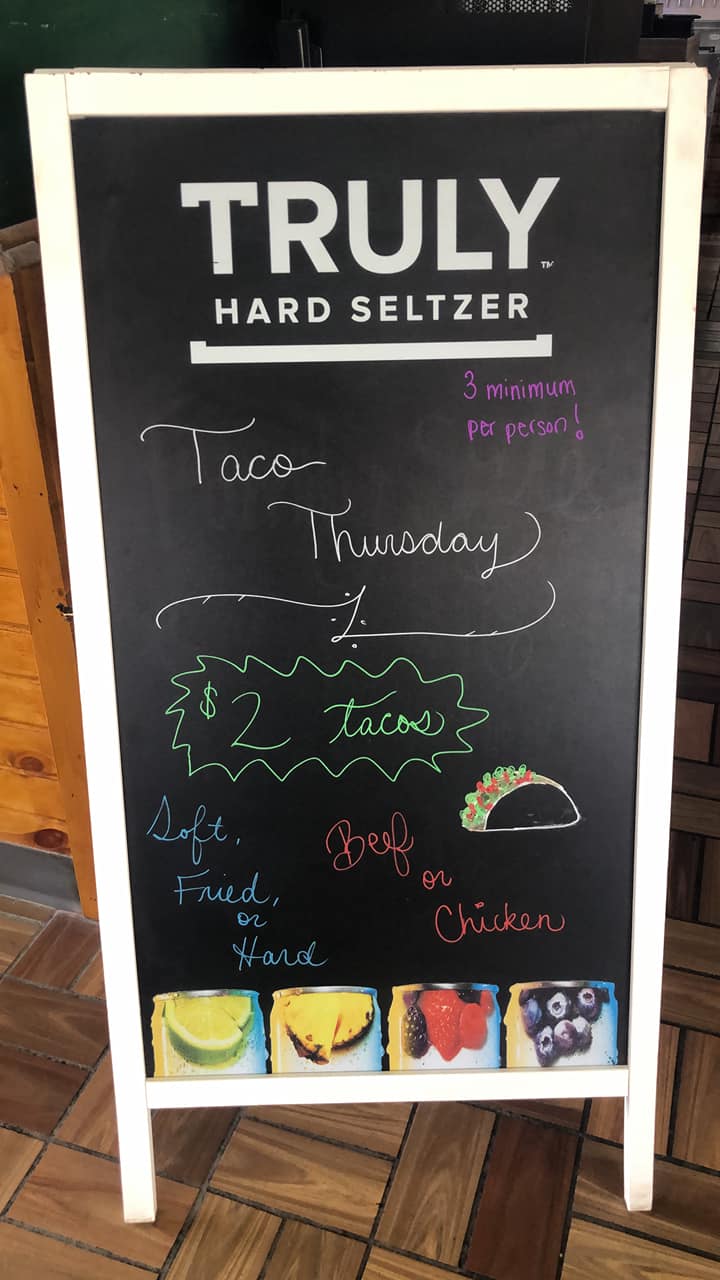 TRULY™
HARD SELTZER
3 minimum
per person!
Taco
Thursday
$2 tacos
Soft,
Fried,
or
Hard
Beef
or
Chicken